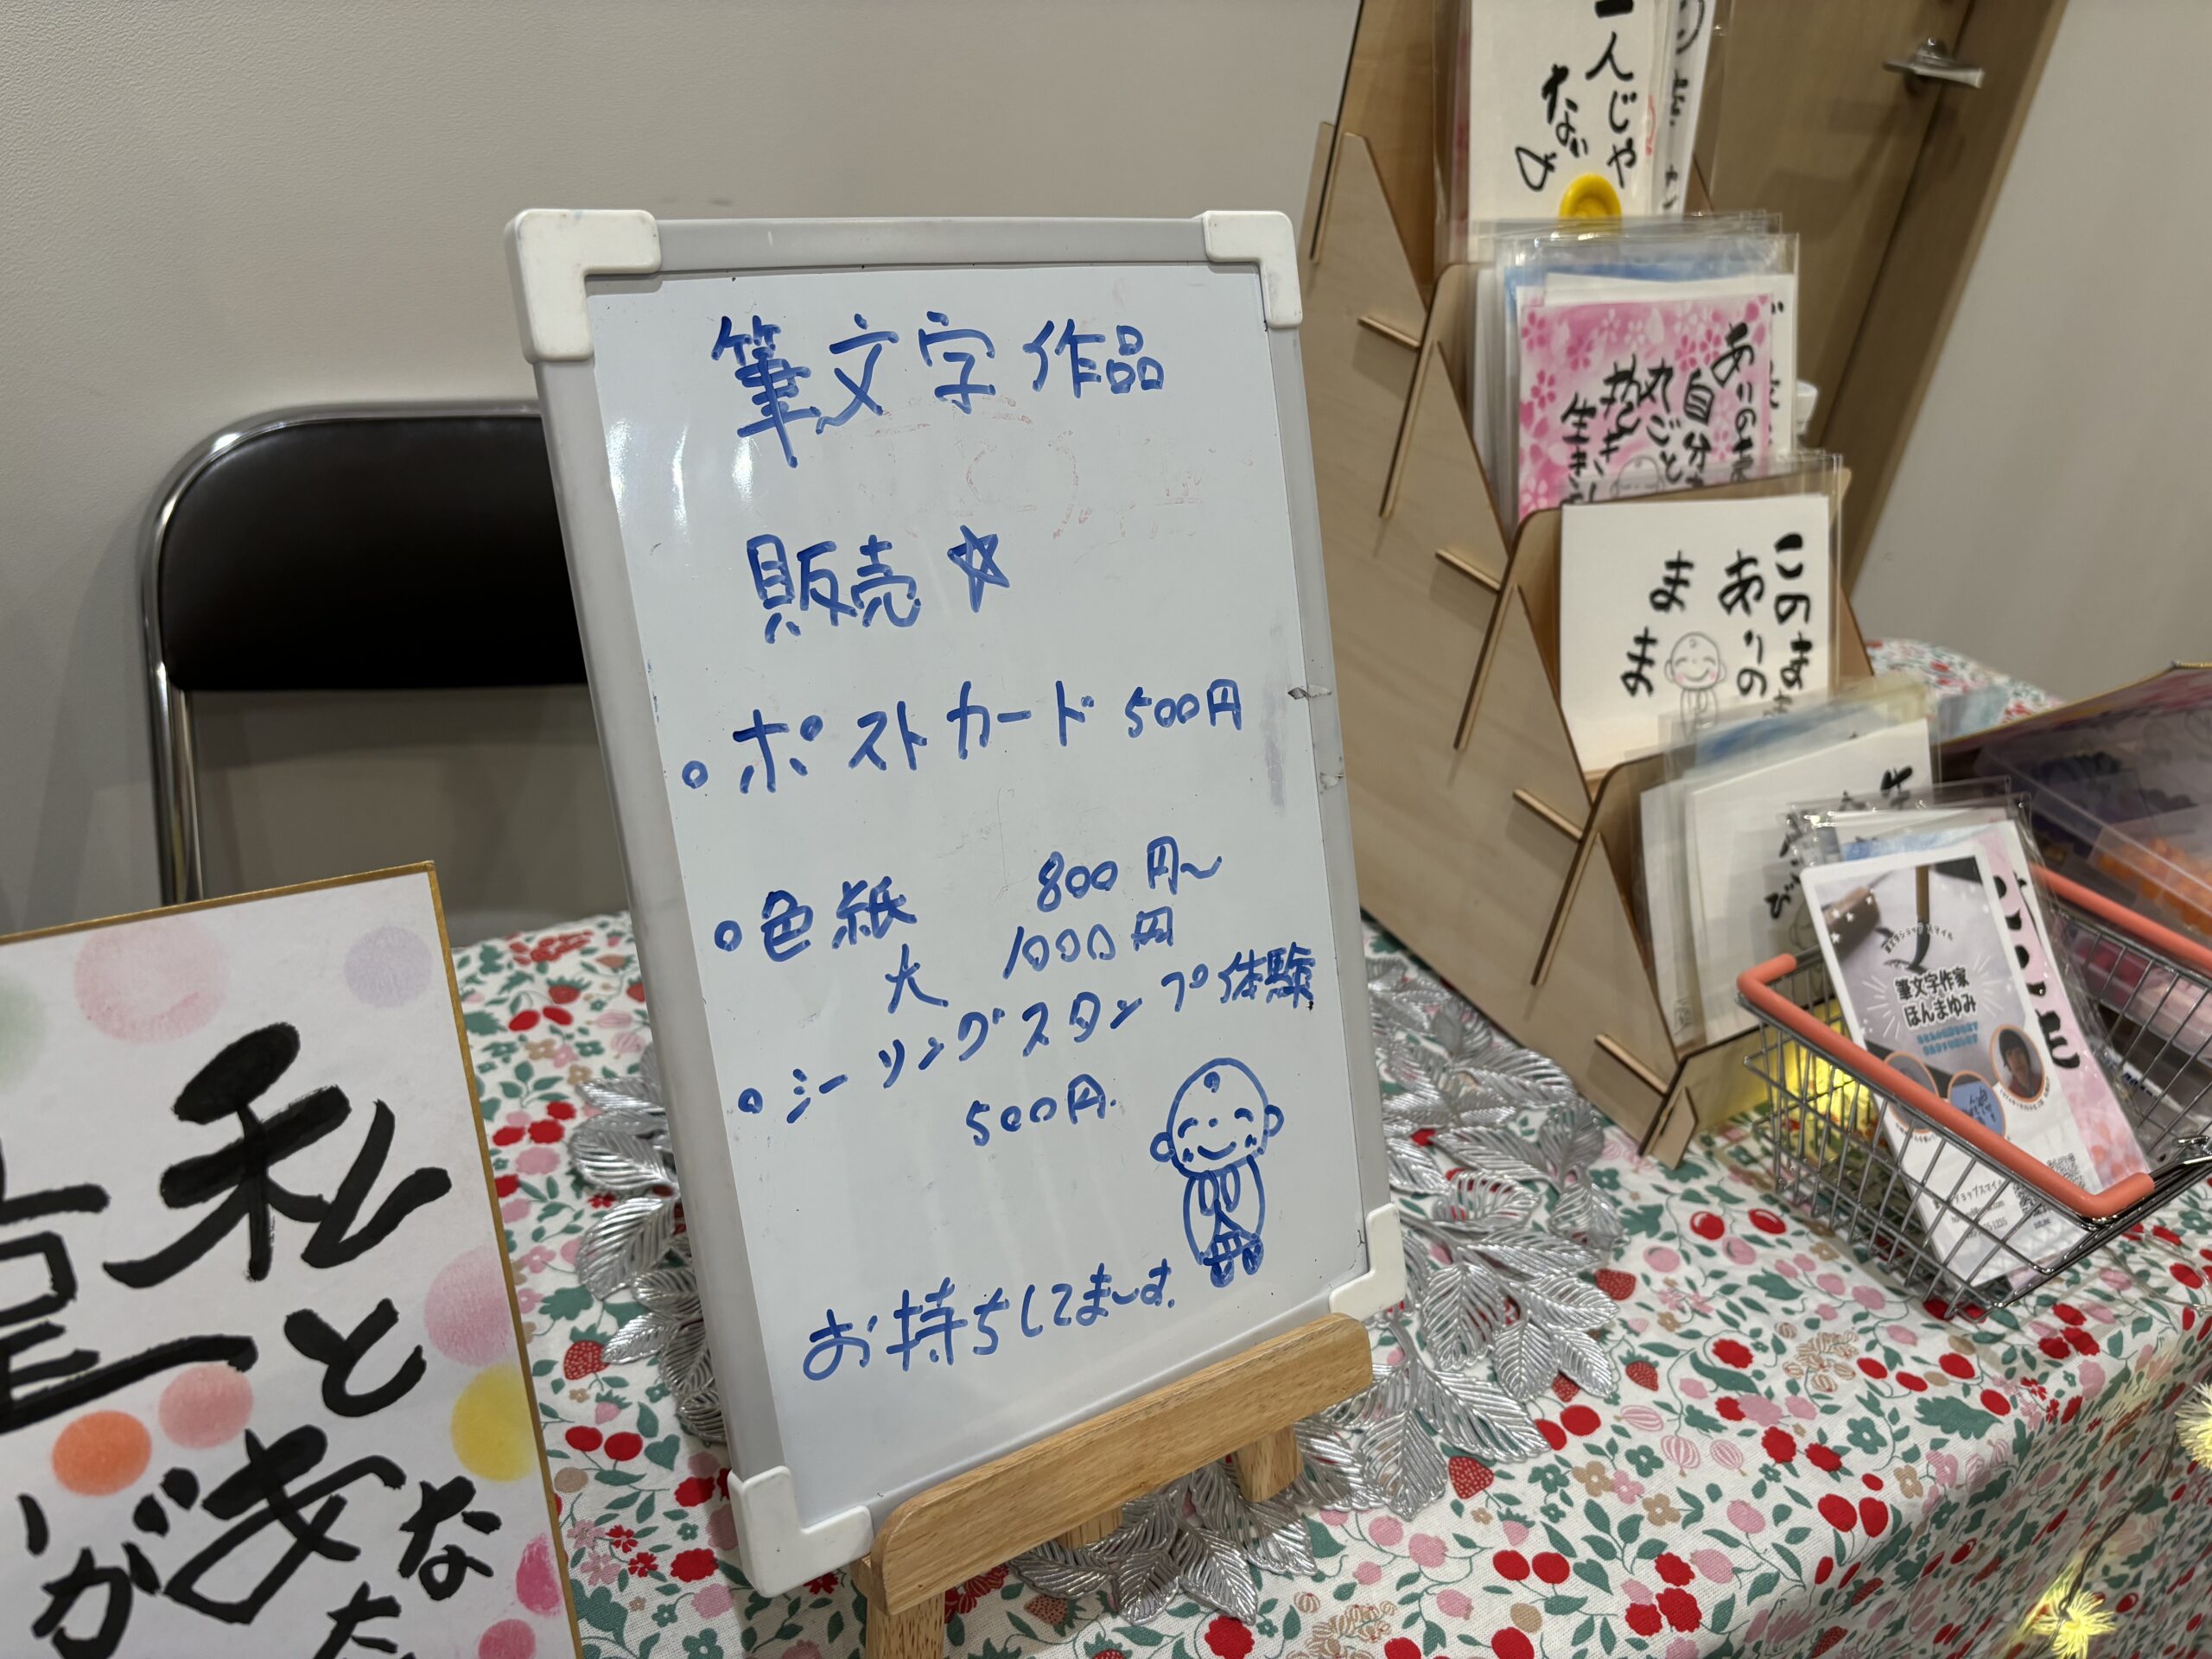 筆文字作品
販売☆
。ポストカード 500円
。色紙 800円〜
大 1000円
。シーリングスタンプ体験
500円.
お持ちしてま〜す.
私と
あなた
が
一人じゃ
ないよ
ありのま
自分
丸ごと
抱きしめ
生き
このまま
ありの
まま
筆文字作家
ほんまゆみ